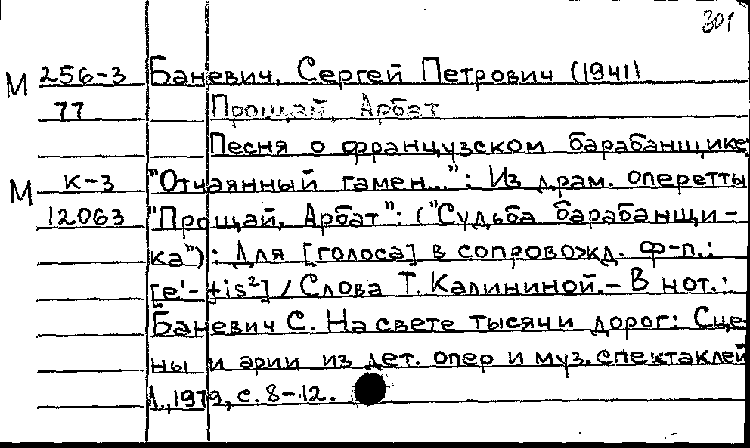 301
М 256-3 Баневич, Сергей Петрович (1941)
77 Прощай, Арбат
Песня о французском барабанщике
М К-3 "Отчаянный гамен...": Из драм. оперетты
12063 "Прощай, Арбат": ("Судьба барабанщи-
ка"): Для [голоса] в сопровожд. ф-п.:
[e'-fis²] / Слова Т. Калининой.- В нот.:
Баневич С. На свете тысячи дорог: Сце-
ны и арии из дет. опер и муз. спектаклей
Л., 1979, с. 8-12.